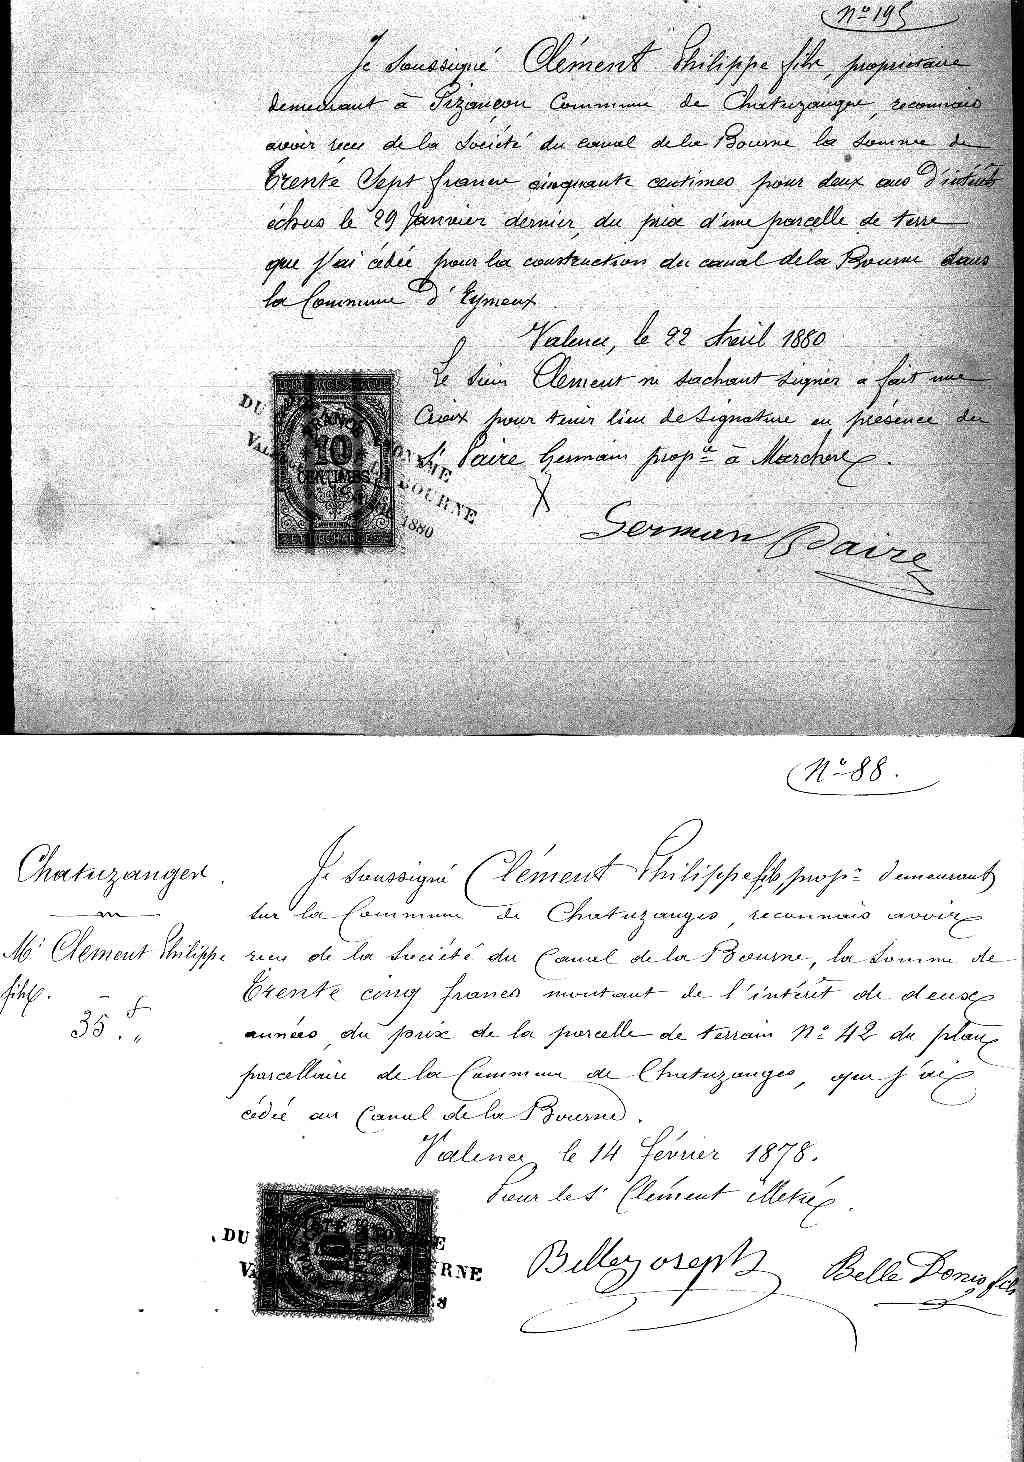 N° 195
Je soussigné Clément Philippe fils, propriétaire
demeurant à Pizançon Commune de Chatuzange, reconnais
avoir reçu de la Société du canal de la Bourne la somme de
Trente Sept francs cinquante centimes pour deux ans d'intérêts
échus le 29 Janvier dernier, du prix d'une parcelle de terre
que j'ai cédée pour la construction du canal de la Bourne dans
la Commune d'Eymeux.
Valence, le 22 Avril 1880
Le sieur Clement ne sachant signer a fait une
Croix pour tenir lieu de signature en présence du
Sr Paire Germain propre à Marches.
FRANCE
10
CENTIMES
DU
ONYME
BOURNE
1880
X
German Paire
N° 88.
Chatuzanges.
Mr Clement Philippe
fils.
35 f. "
Je soussigné Clément Philippe fils, propre demeurant
sur la Commune de Chatuzanges, reconnais avoir
reçu de la Société du Canal de la Bourne, la somme de
Trente cinq francs montant de l'intérêt de deux
années, du prix de la parcelle de terrain N° 42 du plan
parcellaire de la Commune de Chatuzanges, que j'ai
cédée au Canal de la Bourne.
Valence, le 14 février 1878.
Pour le Sr Clément illetré.
DU
RNE
Belle Joseph
Belle Donis fils